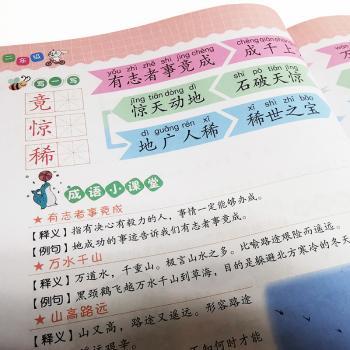 二年级
yǒu zhì zhě shì jìng chéng
有志者事竟成
成千上
写一写
jīng tiān dòng dì
惊天动地
shí pò tiān jīng
石破天惊
竟
惊
稀
dì guǎng rén xī
地广人稀
xī shì zhī bǎo
稀世之宝
成语小课堂
★有志者事竟成
【释义】指有决心有毅力的人，事情一定能够办成。
【例句】她成功的事迹告诉我们有志者事竟成。
★万水千山
【释义】万道水，千重山。极言山水之多。比喻路途艰险而遥远。
【例句】黑颈鹤飞越万水千山到草海，目的是躲避北方寒冷的冬天
★山高路远
【释义】山又高，路途又遥远。形容路途
遥远艰辛。
不知何时才能